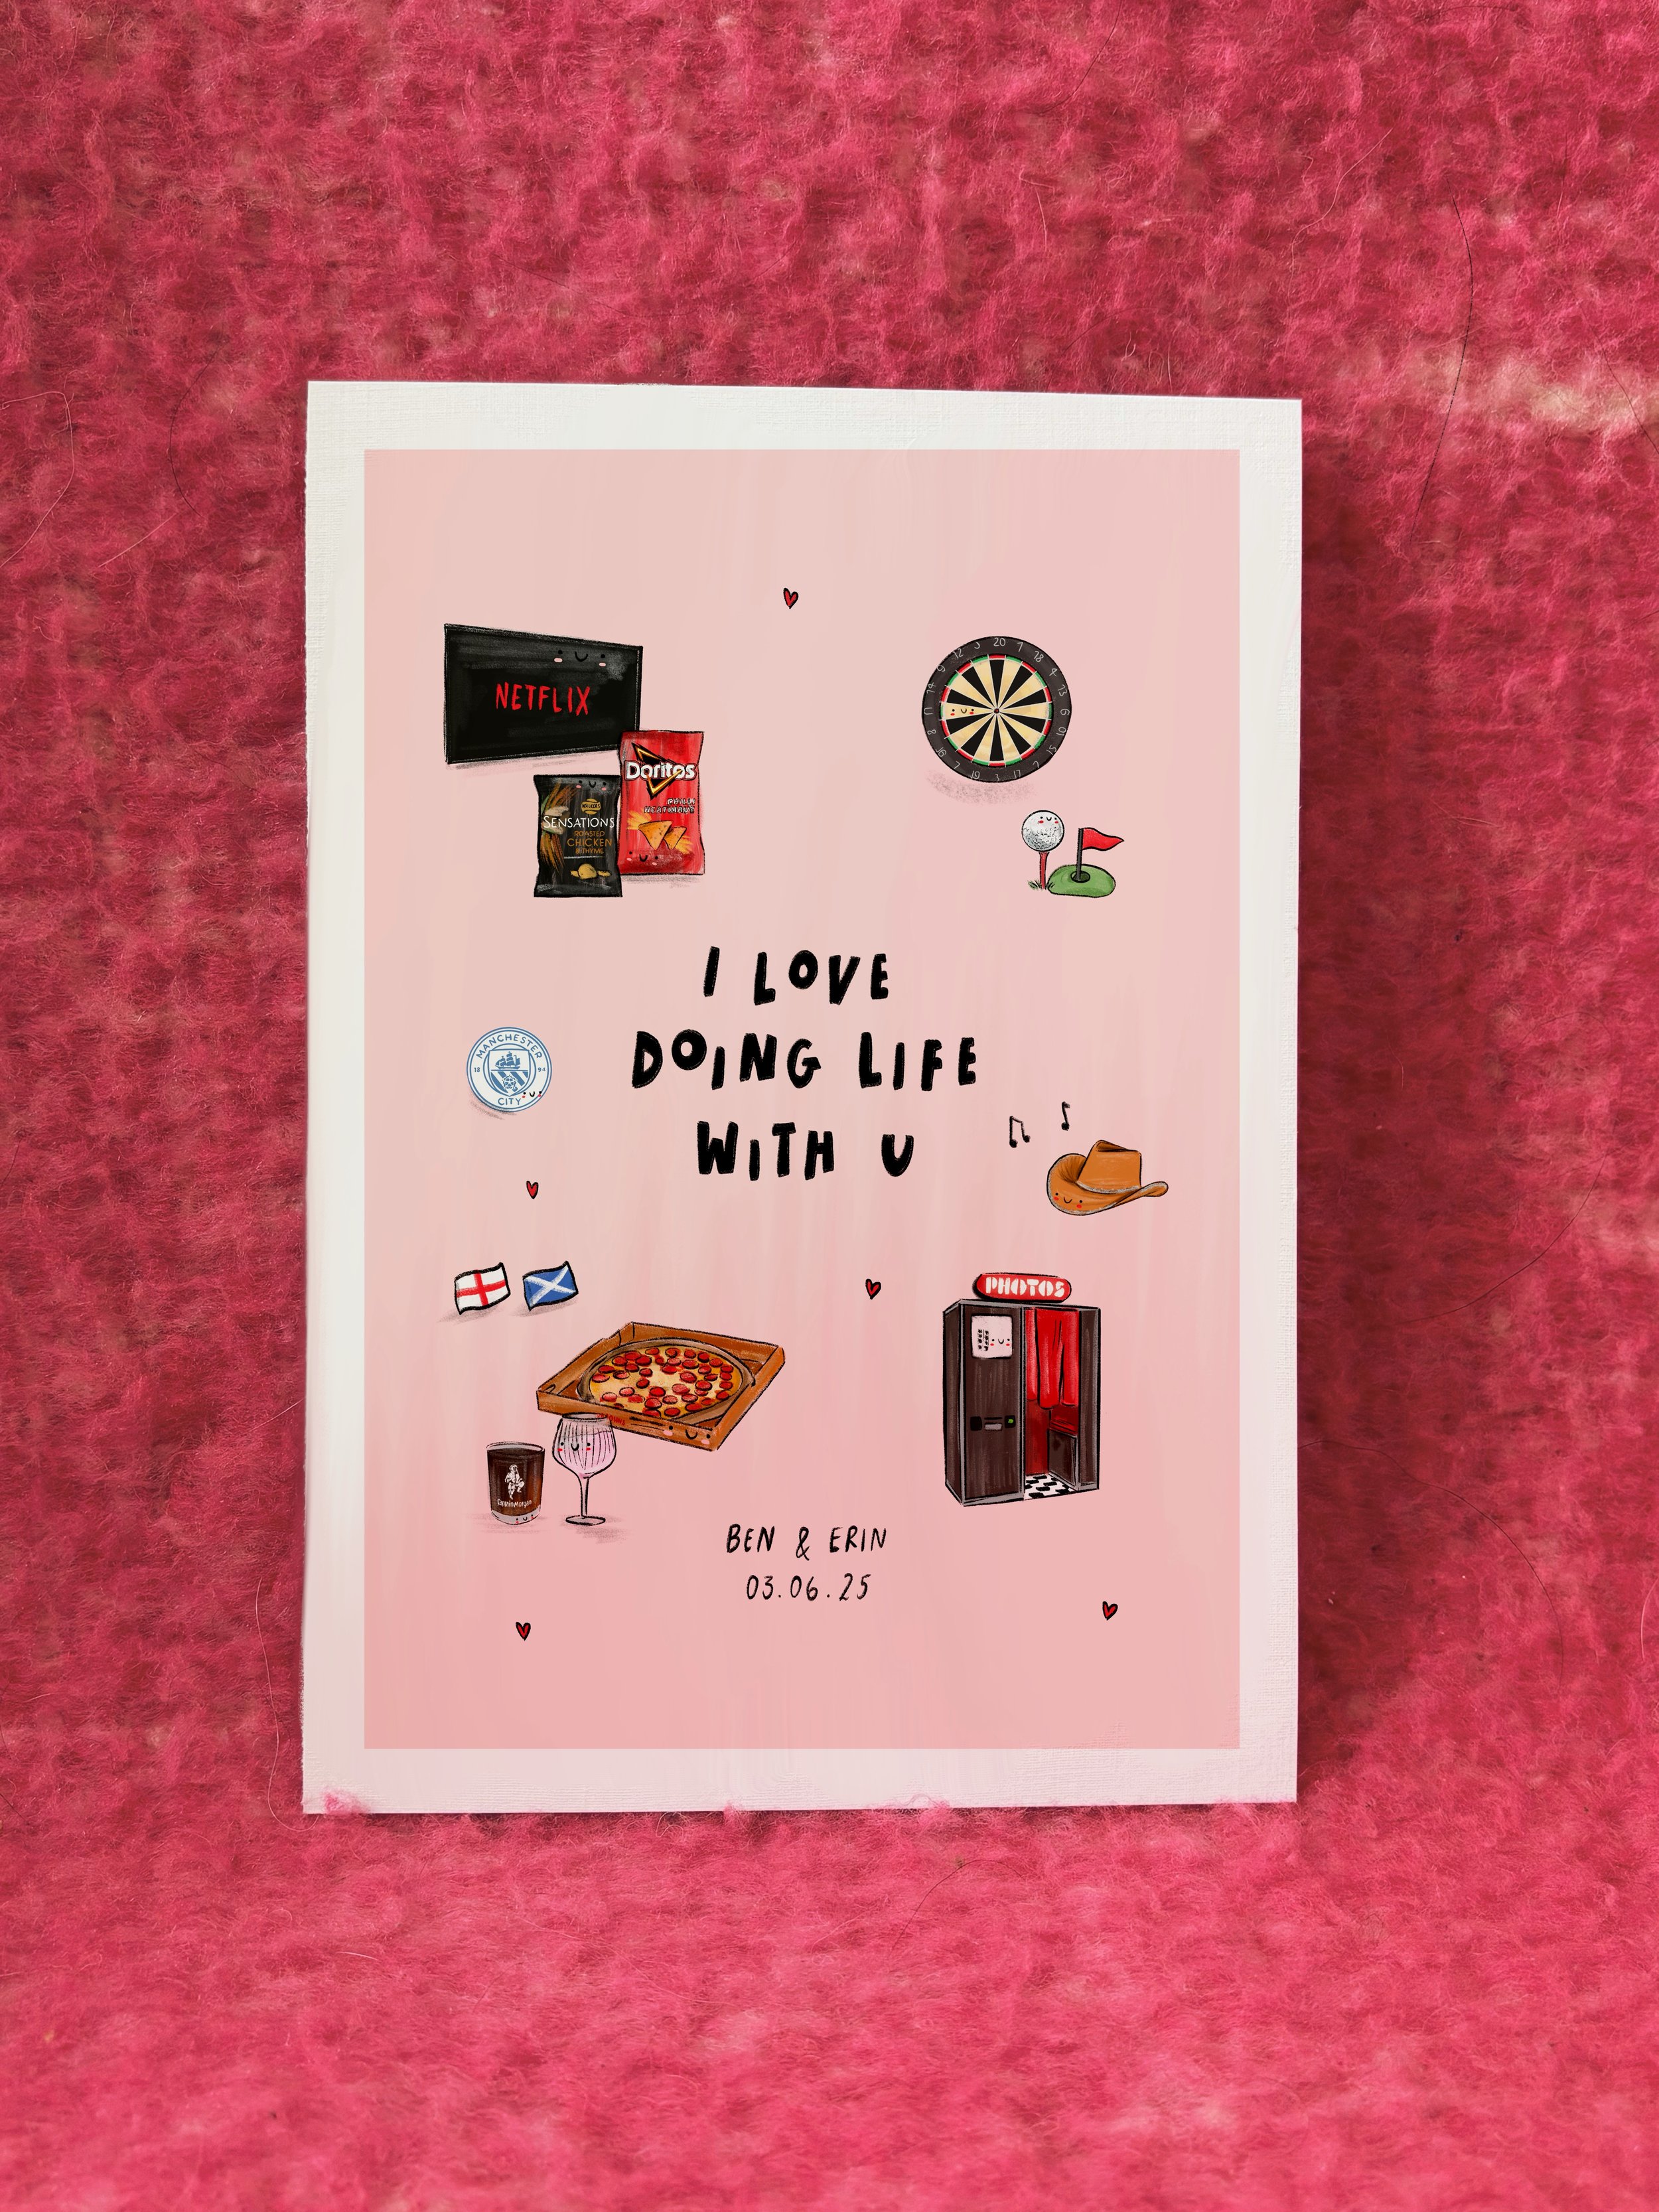 NETFLIX
Doritos
WALKERS
SENSATIONS
ROASTED
CHICKEN
& THYME
12 5 20 7 18 4 13 6
I LOVE
DOING LIFE
WITH U
MANCHESTER
18 94
CITY
PHOTOS
Captain Morgan
BEN & ERIN
03.06.25